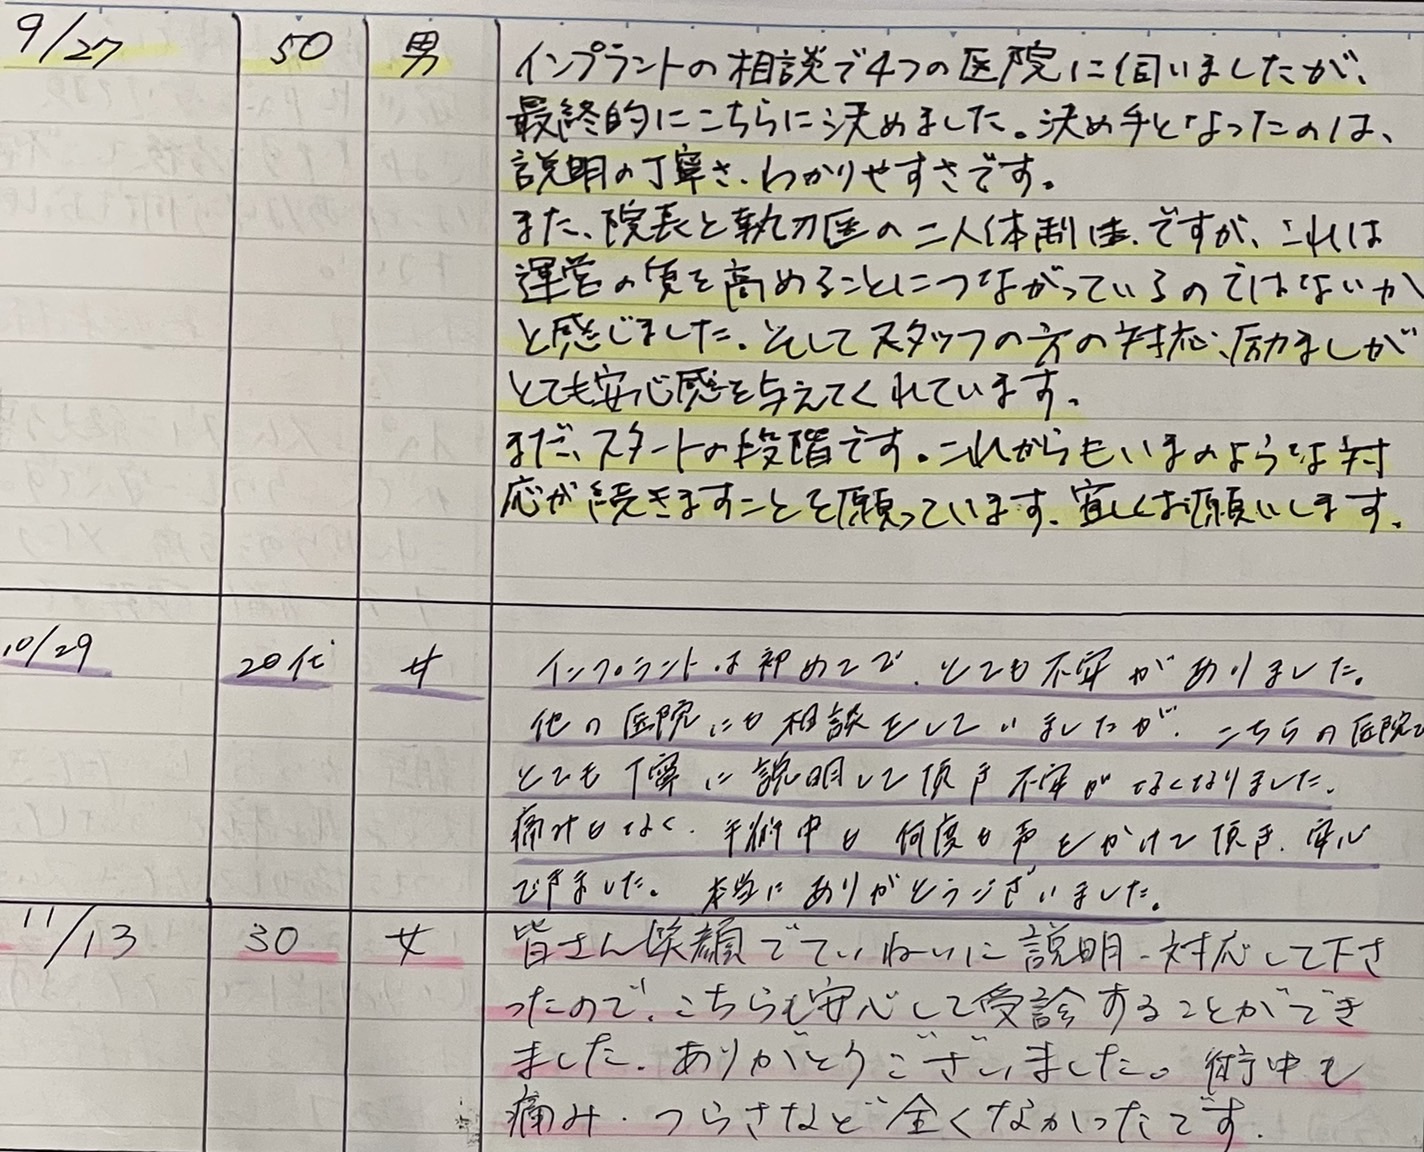 9/27 50 男 インプラントの相談で4つの医院に伺いましたが、
最終的にこちらに決めました。決め手となったのは、
説明の丁寧さ、わかりやすさです。
また、院長と執刀医の二人体制は、ですが、これは
運営の質を高めることにつながっているのではないか
と感じました。そしてスタッフの方の対応、励ましが
とても安心感を与えてくれています。
まだ、スタートの段階です。これからもいまのような対
応が続きますことを願っています。宜しくお願いします。
10/29 20代 女 インプラントは初めてで、とても不安がありました。
他の医院にも相談をしていましたが、こちらの医院で
とても丁寧に説明して頂き不安がなくなりました。
痛みもなく、手術中も何度も声をかけて頂き、安心
できました。本当にありがとうございました。
11/13 30 女 皆さん笑顔でていねいに説明・対応して下さ
ったので、こちらも安心して受診することができ
ました。ありがとうございました。術中も
痛み・つらさなど全くなかったです。